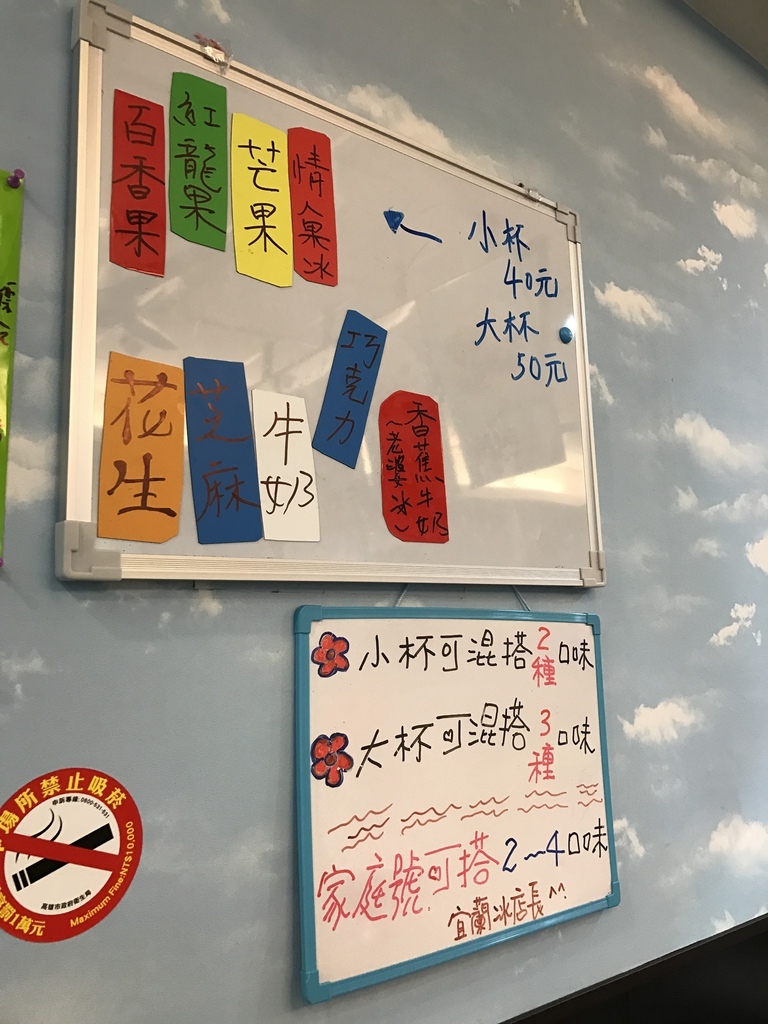 百香果
紅龍果
芒果
情人果冰
小杯
40元
大杯
50元
花生
芝麻
牛奶
巧克力
香蕉牛奶
(老婆冰)
小杯可混搭2種口味
大杯可混搭3種口味
家庭號可搭2~4口味
宜蘭冰店長^^
場所禁止吸菸
申訴專線:0800-531-531
高雄市政府衛生局
1萬元
Maximum Fine:NT$10,000